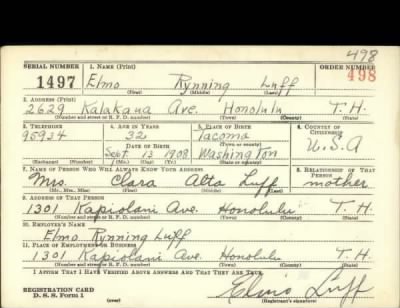 498
SERIAL NUMBER 1. NAME (Print) ORDER NUMBER
1497 Elmo Rynning Luff 498
(First) (Middle) (Last)
2. ADDRESS (Print)
2629 Kalakaua Ave. Honolulu T. H.
(Number and street or R. F. D. number) (Town) (County) (State)
3. TELEPHONE 4. AGE IN YEARS 5. PLACE OF BIRTH 6. COUNTRY OF CITIZENSHIP
95934 32 Tacoma U.S.A
DATE OF BIRTH (Town or county)
Sept. 13 1908 Washington
(Exchange) (Number) (Mo.) (Day) (Yr.) (State or country)
7. NAME OF PERSON WHO WILL ALWAYS KNOW YOUR ADDRESS 8. RELATIONSHIP OF THAT PERSON
Mrs. Clara Alta Luff mother
(Mr., Mrs., Miss) (First) (Middle) (Last)
9. ADDRESS OF THAT PERSON
1301 Kapiolani Ave. Honolulu T. H.
(Number and street or R. F. D. number) (Town) (County) (State)
10. EMPLOYER'S NAME
Elmo Rynning Luff
11. PLACE OF EMPLOYMENT OR BUSINESS
1301 Kapiolani Ave. Honolulu T. H.
(Number and street or R. F. D. number) (Town) (County) (State)
I AFFIRM THAT I HAVE VERIFIED ABOVE ANSWERS AND THAT THEY ARE TRUE.
REGISTRATION CARD
D. S. S. Form 1 (over) Elmo Luff
(Registrant's signature)